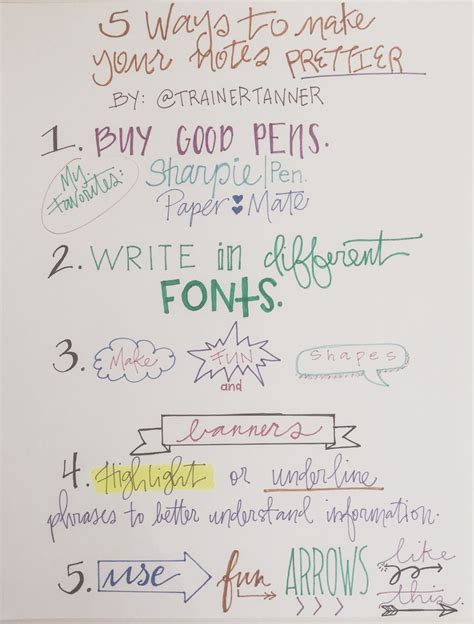 5 Ways to make
your notes PRETTIER
BY: @TRAINERTANNER
1. BUY GOOD PENS.
My Favorites:
Sharpie | Pen.
Paper Mate
2. WRITE in different
FONTS.
3. Make FUN Shapes
and
banners
4. Highlight or underline
phrases to better understand information.
5. use fun ARROWS like
this.